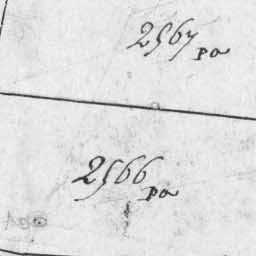 2567 pa
2566 pa